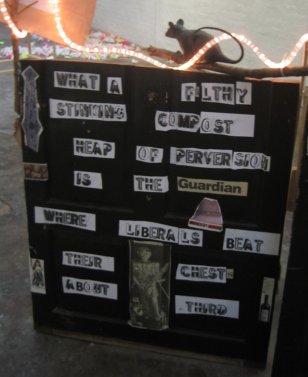 WHAT A FILTHY
STINKING COMPOST
HEAP OF PERVERSION
IS THE Guardian
WHERE LIBERALS BEAT
THEIR CHESTS
ABOUT THIRD